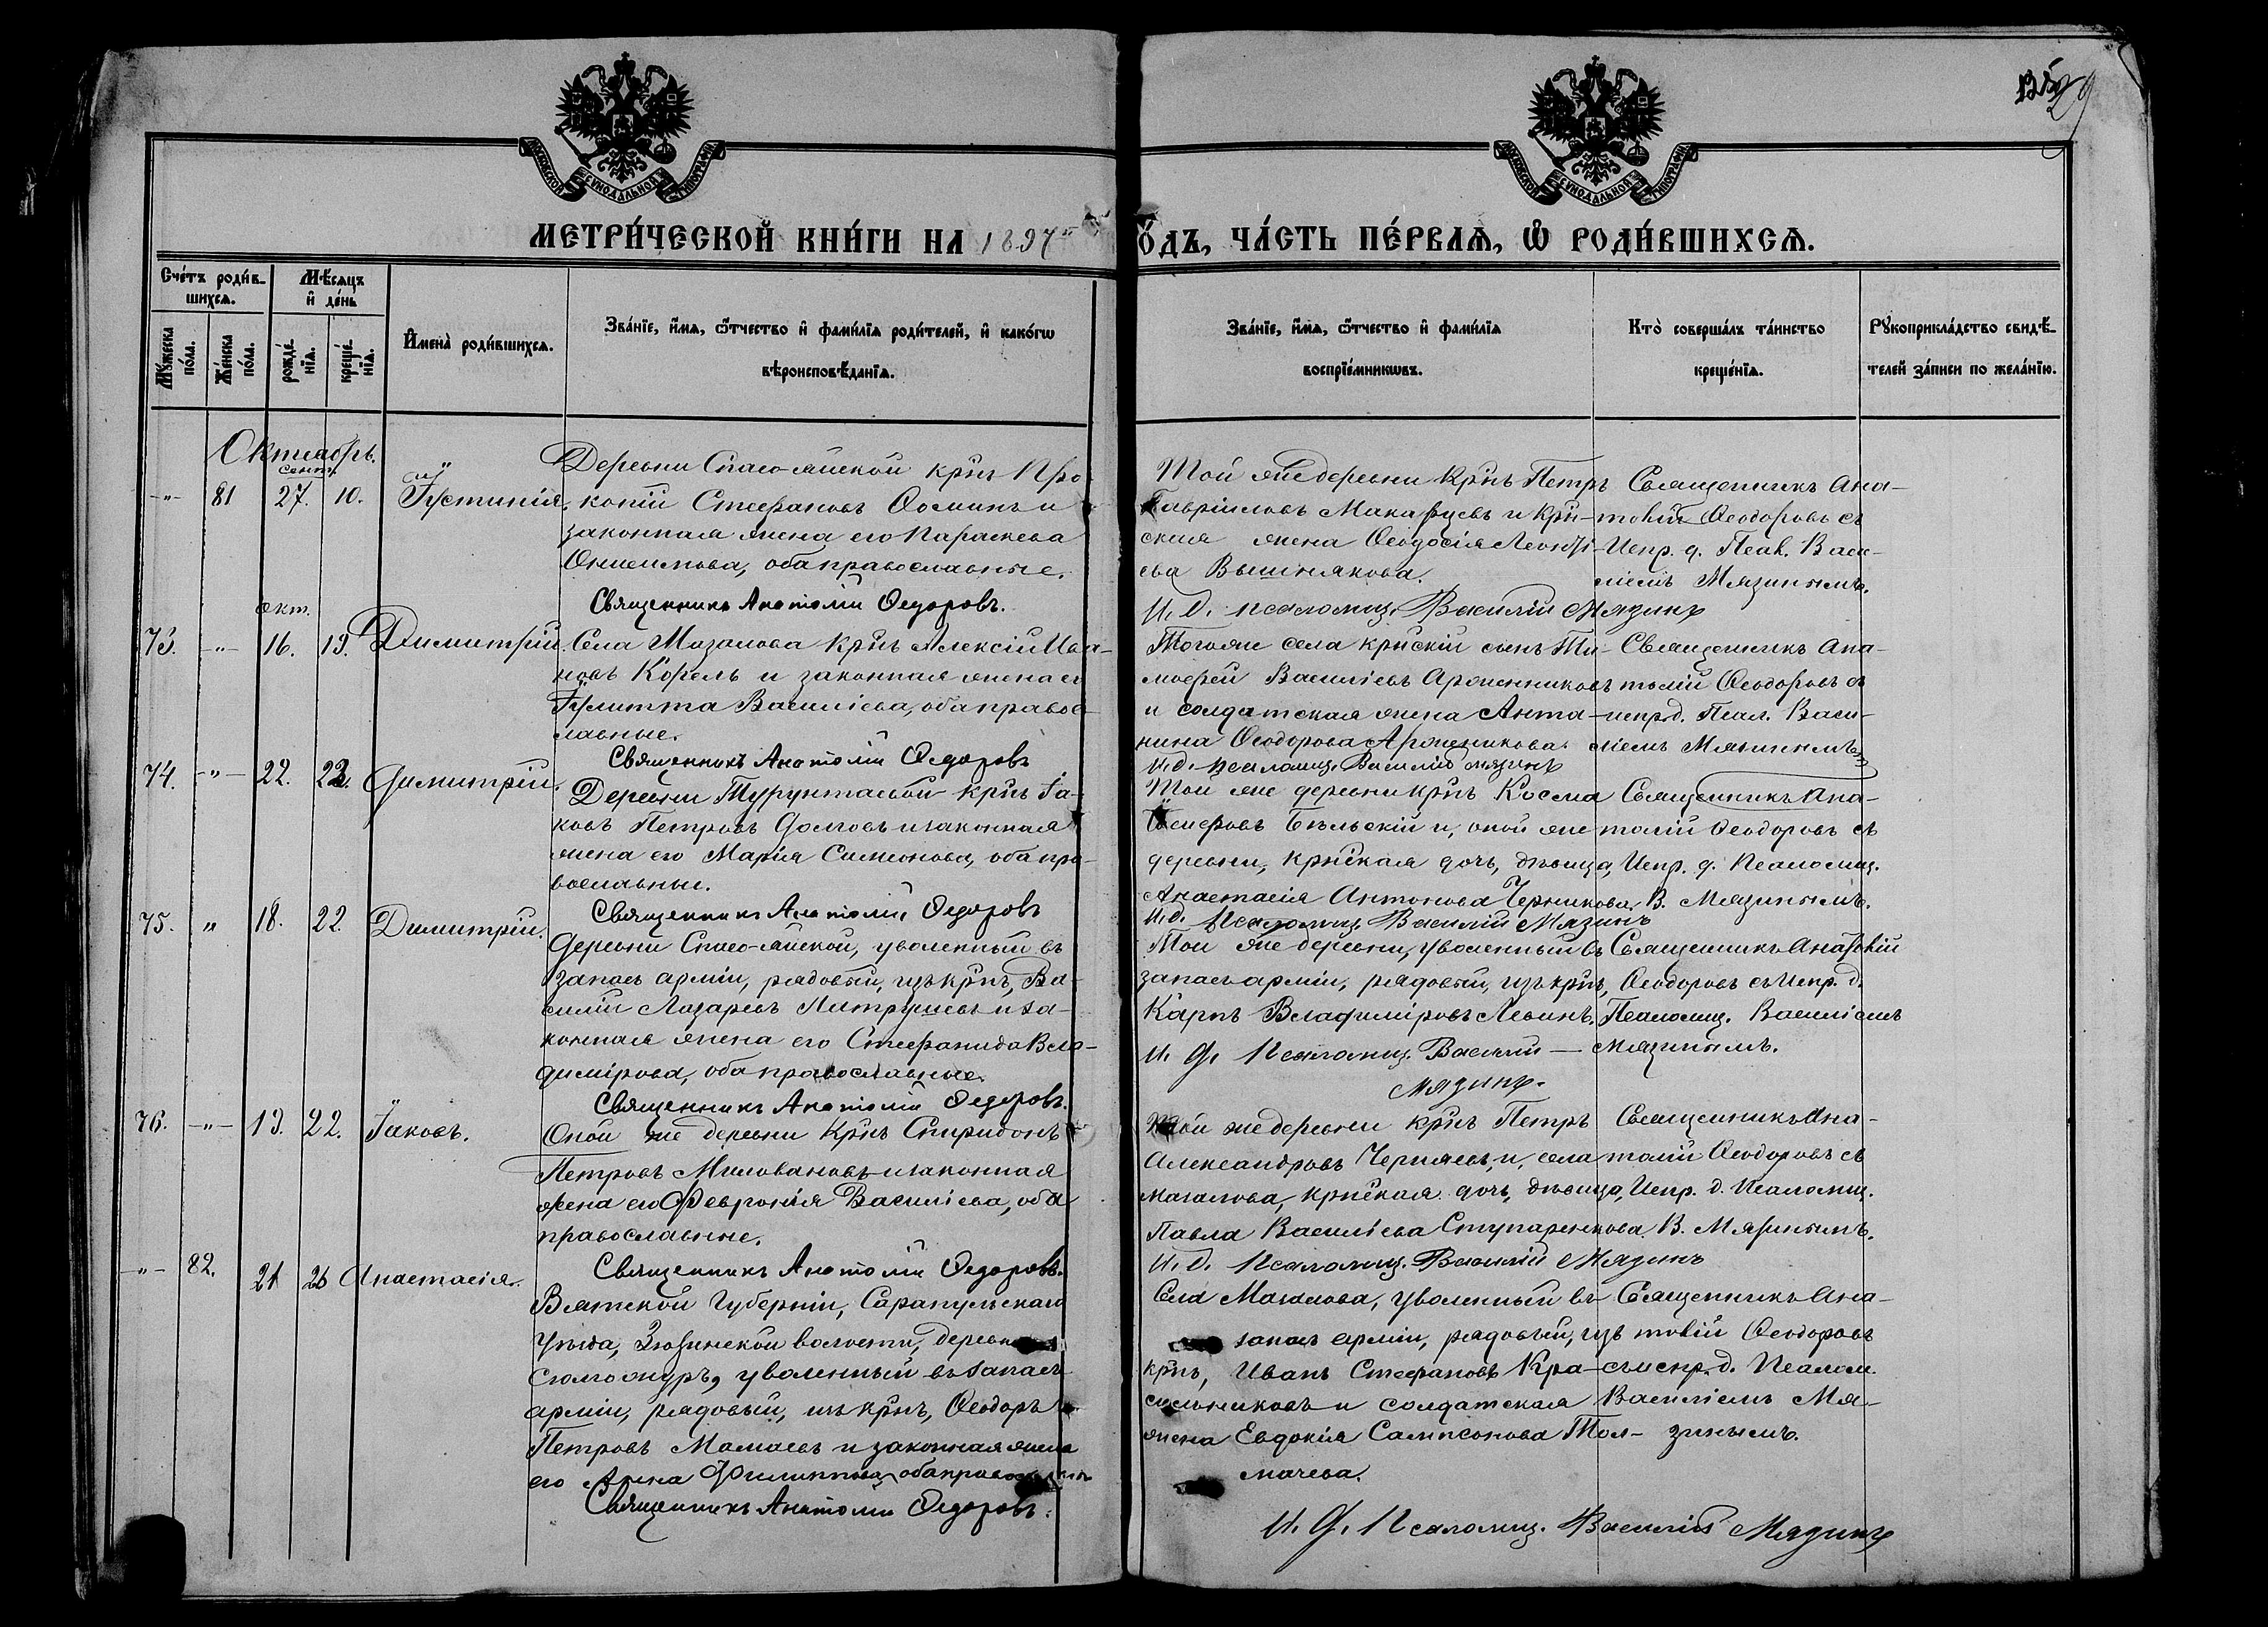 129
МОСКОВСКОЙ СѴНОДАЛЬНОЙ ТИПОГРАФІИ
МОСКОВСКОЙ СѴНОДАЛЬНОЙ ТИПОГРАФІИ
МЕТРИ́ЧЕСКОЙ КНИ́ГИ НА 1897 го́дъ, ЧА́СТЬ ПЕ́РВАѦ, Ѡ҆ РОДИ́ВШИХСѦ.
Сче́тъ роди́в-
шихсѧ.
Мѣ́сѧцъ
и҆ де́нь
Мꙋ́жеска по́ла.
Же́нска по́ла.
рожде́нїѧ.
креще́нїѧ.
И҆мена̀ роди́вшихсѧ.
Зва́нїе, и҆́мѧ, ѻ҆́тчество и҆ фами́лїѧ роди́телей, и҆ како́гѡ
вѣроисповѣ́данїѧ.
Зва́нїе, и҆́мѧ, ѻ҆́тчество и҆ фами́лїѧ
воспрїе́мникѡвъ.
Кто̀ соверша́лъ та́инство
креще́нїѧ.
Рꙋкоприкла́дство свидѣ́-
телей за́писи по жела́нїю.
Октябрь.
сент.
-"- 81 27. 10. Іустинія.
Деревни Спасо-айской крнъ Про-
копій Стефановъ Ѳоминъ и
законная жена его Параскева
Онисимова, оба православные.
Священникъ Анатолій Федоровъ.
Той же деревни крнъ Петръ
Гавріиловъ Макарцевъ и кри-
ская жена Ѳеодосія Леонті-
ева Вышнякова.
И. д. псаломщ. Василій Мязинъ
Священникъ Ана-
толій Ѳеодоровъ съ
Испр. д. Псал. Васи-
ліемъ Мязинымъ.
окт.
73. -"- 16. 19. Димитрій.
Села Мазалова крнъ Алексій Ива-
новъ Корель и законная жена его
Іулитта Василіева, оба правос-
лавные.
Священникъ Анатолій Федоровъ
Тогоже села крнскій сынъ Ти-
моѳей Василіевъ Арженниковъ
и солдатская жена Анто-
нина Ѳеодорова Арженикова.
И. д. псаломщ. Василій Мязинъ
Священникъ Ана-
толій Ѳеодоровъ съ
испр. д. Псал. Васи-
ліемъ Мязинымъ
74. -"- 22. 22. Димитрій.
Деревни Турунтаевой крнъ Іа-
ковъ Петровъ Долговъ и законная
жена его Марія Симеонова, оба пра-
вославные.
Священникъ Анатолій Федоровъ
Той же деревни крнъ Косма
Бѣльскій и, оной же
деревни, крнская дочь, дѣвица,
Анастасія Антонова Черникова.
И. д. Псаломщ. Василій Мязинъ
Священникъ Ана-
толій Ѳеодоровъ съ
Испр. д. Псаломщ.
В. Мязинымъ.
75. " 18. 22. Димитрій.
Деревни Спасо-айской, уволенный въ
запасъ арміи, рядовый, изъ крнъ, Ва-
силій Лазаревъ и за-
конная жена его Стефанида Вла-
димірова, оба православные.
Священникъ Анатолій Федоровъ.
Той же деревни, уволенный въ
запасъ арміи, рядовый, изъ крнъ,
Карпъ Владиміровъ Левинъ.
И. д. Псаломщ. Василій —
Мязинъ.
Священникъ Анатолій
Ѳеодоровъ съ Испр. д.
Псаломщ. Василіемъ
Мязинымъ.
76. -"- 19. 22. Іаковъ.
Оной же деревни крнъ Спиридонъ
Петровъ Миловановъ и законная
жена его Февронія Василіева, оба
православные.
Священникъ Анатолій Федоровъ.
Той же деревни крнъ Петръ
Александровъ Черняевъ, и, села
Мазалова, крнская дочь, дѣвица,
Павла Василіева Ступаренкова.
И. д. Псаломщ. Василій Мязинъ
Священникъ Ана-
толій Ѳеодоровъ съ
Испр. д. Псаломщ.
В. Мязинымъ.
-"- 82. 21 26 Анастасія.
Вятской Губерніи, Сарапульскаго
уѣзда, Зюзинской волости, деревни
уволенный въ запасъ
арміи, рядовый, изъ крнъ, Ѳеодоръ
Петровъ Мамаевъ и законная жена
его Анна Филиппова, оба православные
Священникъ Анатолій Федоровъ.
Села Мазалова, уволенный въ
запасъ арміи, рядовый, изъ
крнъ, Иванъ Стефановъ Кра-
сильниковъ и солдатская
жена Евдокія Сампсонова Тол-
мачева.
И. д. Псаломщ. Василій Мязинъ
Священникъ Ана-
толій Ѳеодоровъ
съ испр. д. Псалом.
Василіемъ Мя-
зинымъ.